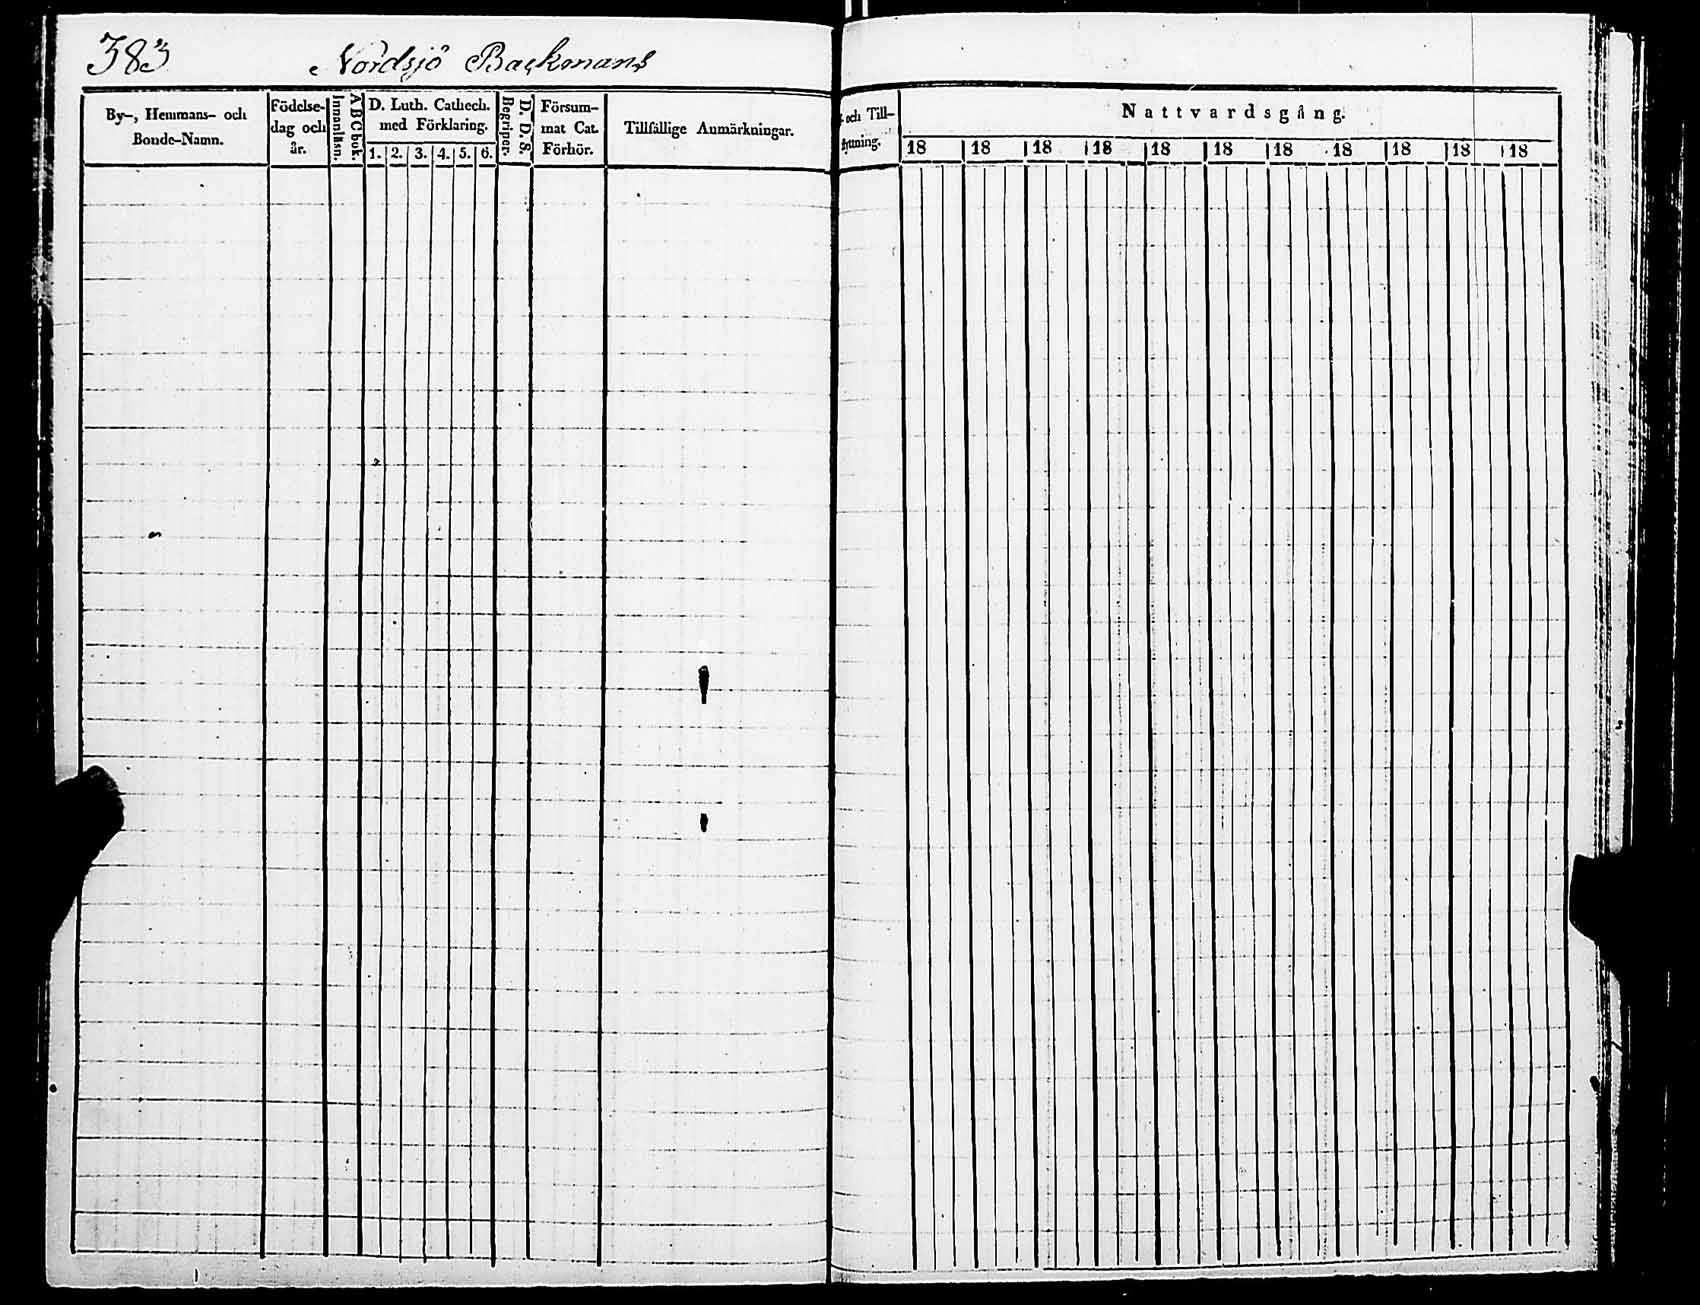 383 Nordsjö Backmans
By-, Hemmans- och
Bonde-Namn.
Födelse-
dag och
år.
Innanläsn.
ABC bok.
D. Luth. Cathech.
med Förklaring.
1. 2. 3. 4. 5. 6.
Begriper.
D. D. S.
Försum-
mat Cat.
Förhör.
Tillfällige Anmärkningar.
och Till-
flyttning.
Nattvardsgång.
18 18 18 18 18 18 18 18 18 18 18